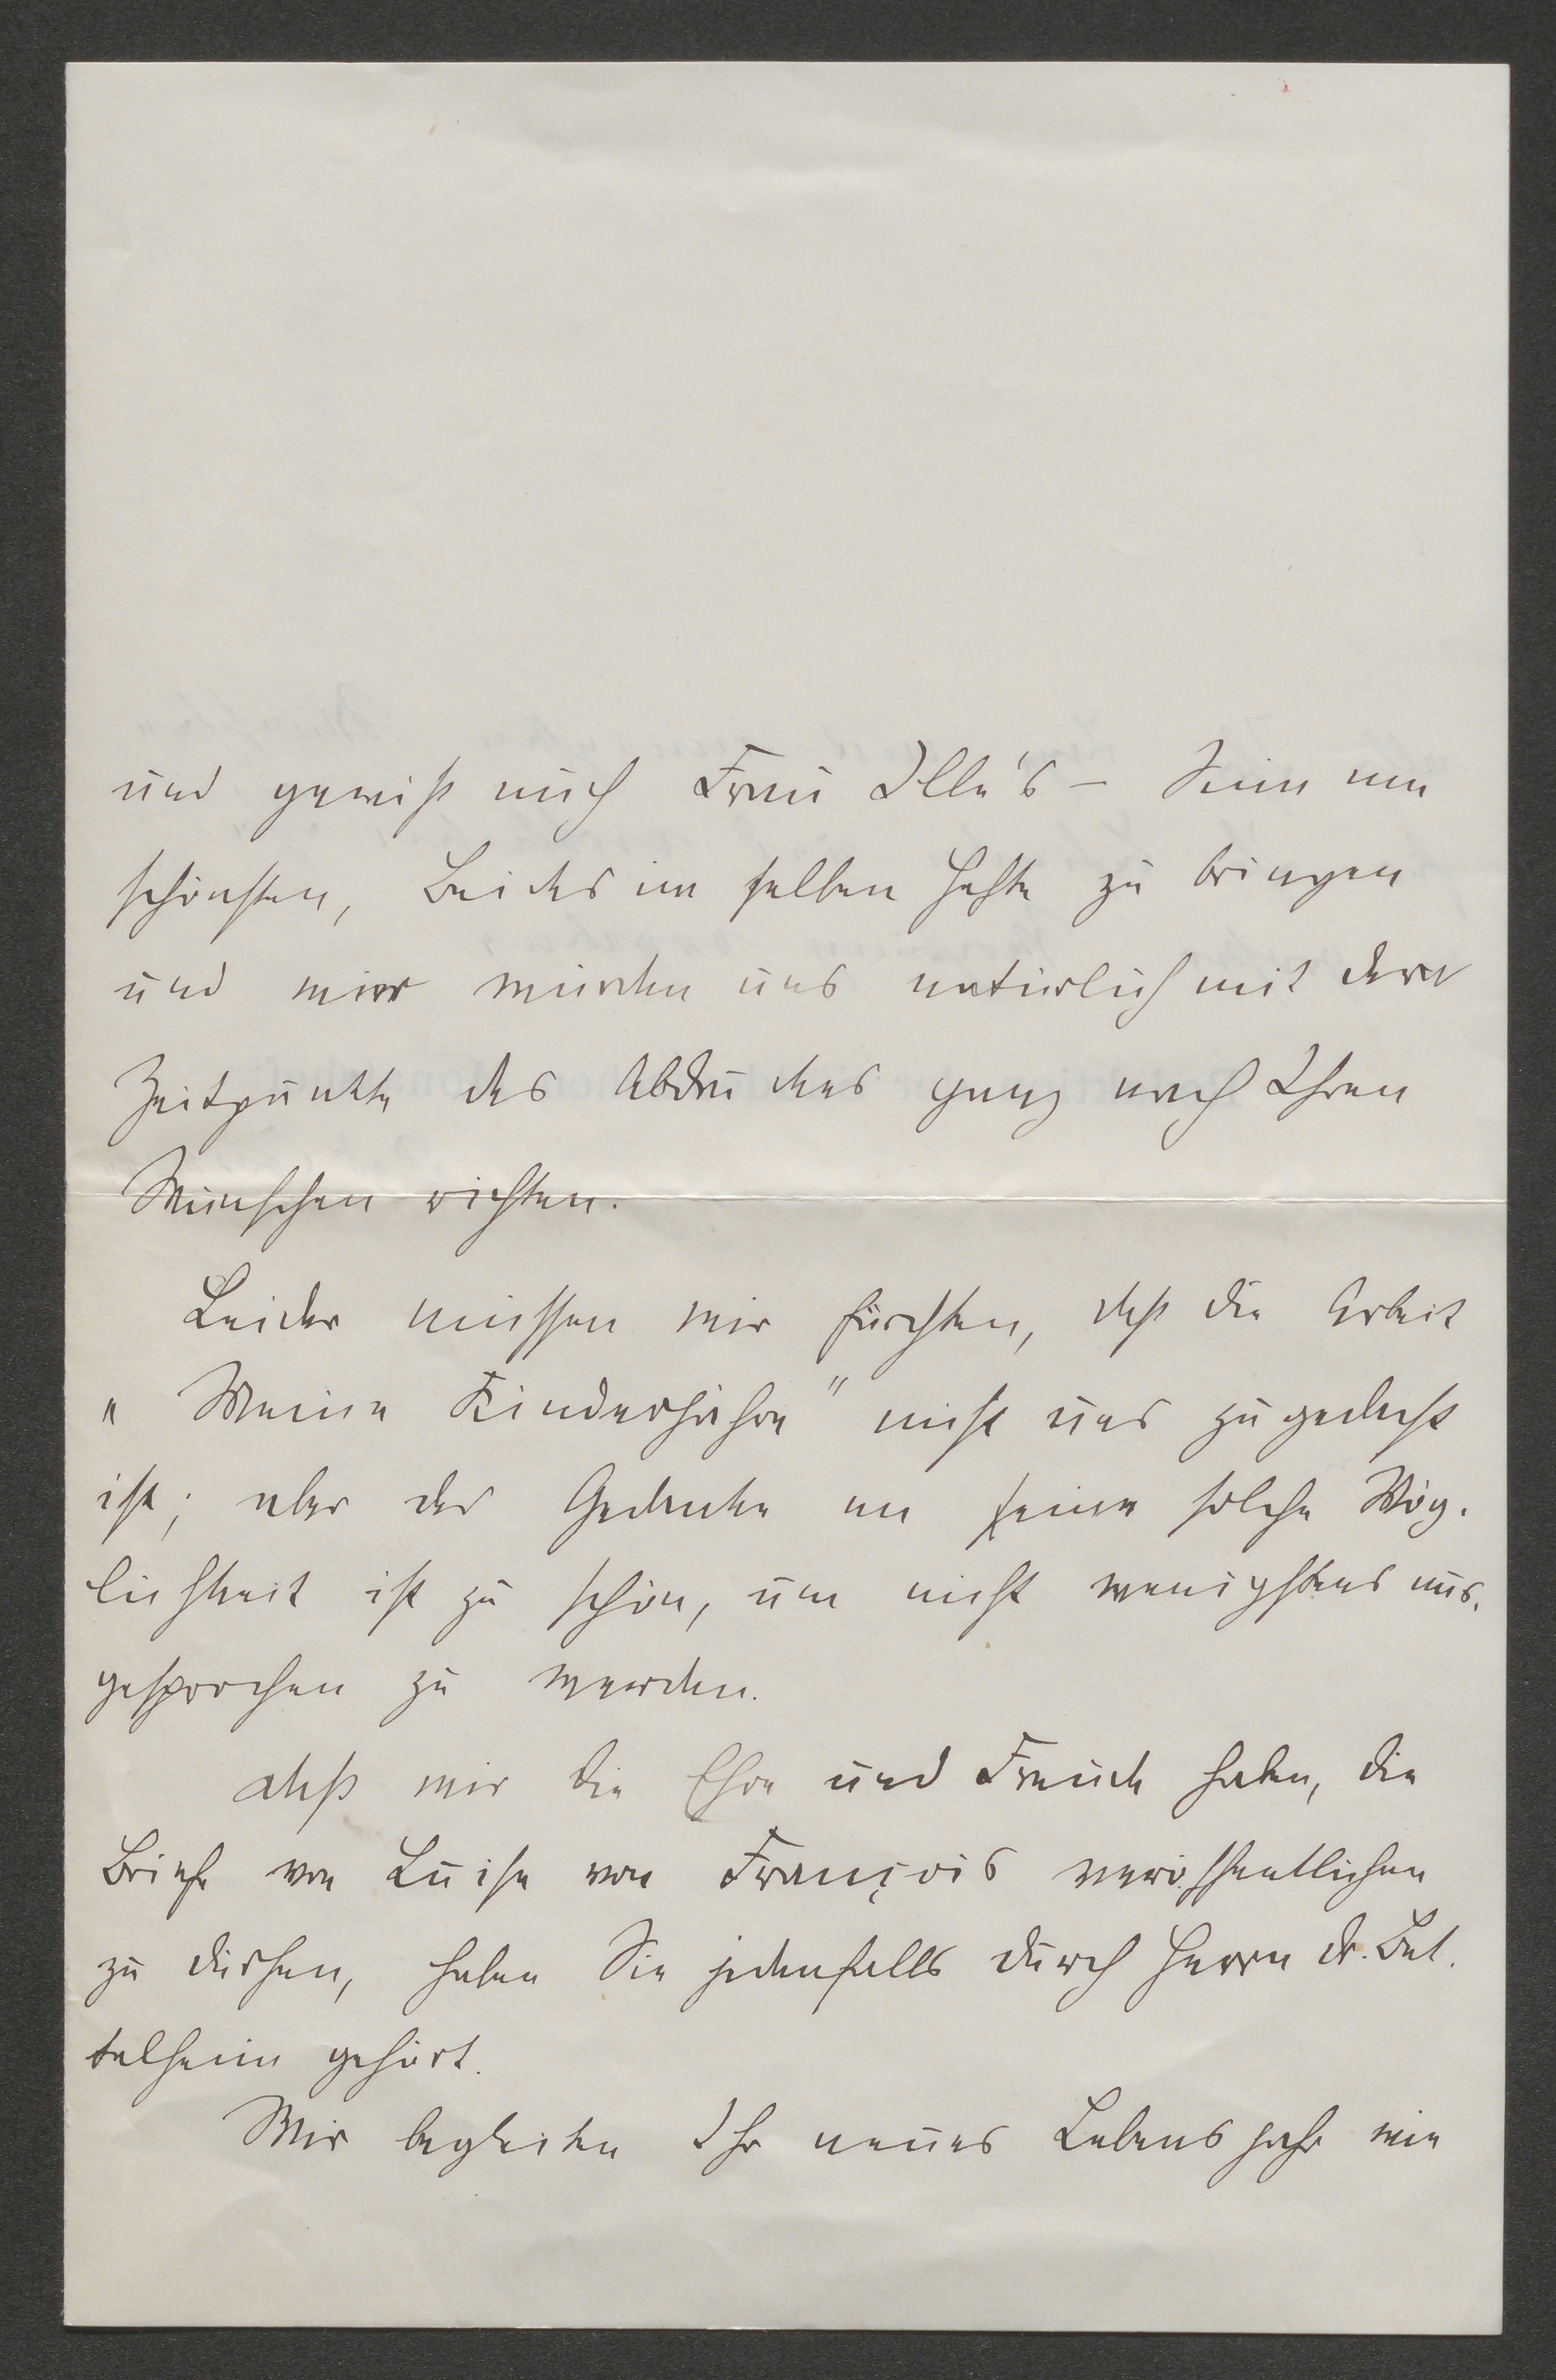 und gewiß auch Frau Ille's – Sinn am
schönsten, Beides im selben Hefte zu bringen
und wir würden uns natürlich mit dem
Zeitpunkte des Abdruckes ganz nach Ihren
Wünschen richten.
Leider müssen wir fürchten, daß die Arbeit
„Meine Kinderjahre" nicht uns zugedacht
ist; aber der Gedanke an eine solche Mög-
lichkeit ist zu schön, um nicht wenigstens aus-
gesprochen zu werden.
Daß wir die Ehre und Freude haben, die
Briefe von Luise von François veröffentlichen
zu dürfen, haben Sie jedenfalls durch Herrn Dr. Bet-
telheim gehört.
Wir begleiten Ihr neues Lebensjahr wie